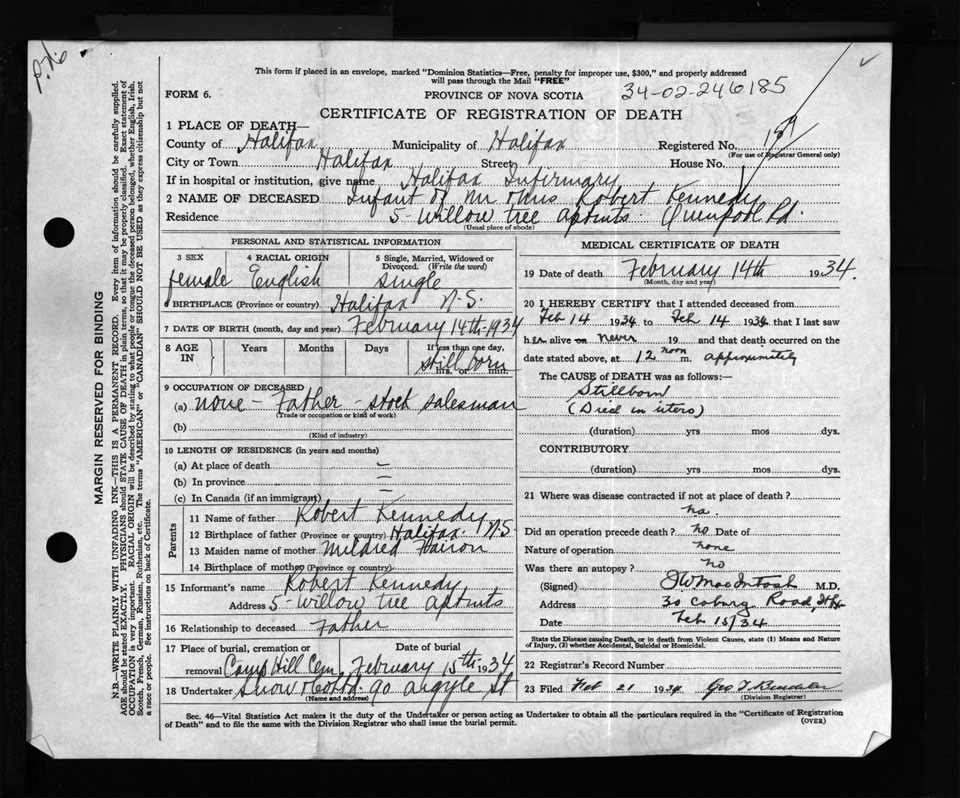 P.26
This form if placed in an envelope, marked "Dominion Statistics—Free, penalty for improper use, $300," and properly addressed
will pass through the Mail "FREE"
FORM 6.
PROVINCE OF NOVA SCOTIA
34-02-246185
CERTIFICATE OF REGISTRATION OF DEATH
1 PLACE OF DEATH—
County of Halifax Municipality of Halifax Registered No. 159
(For use of Registrar General only)
City or Town Halifax Street House No.
If in hospital or institution, give name Halifax Infirmary
2 NAME OF DECEASED Infant of Mr & Mrs Robert Kennedy
Residence 5-Willow tree aptmts. Quinpool Rd.
(Usual place of abode)
PERSONAL AND STATISTICAL INFORMATION
3 SEX 4 RACIAL ORIGIN 5 Single, Married, Widowed or
Divorced. (Write the word)
female English single
BIRTHPLACE (Province or country) Halifax N.S.
7 DATE OF BIRTH (month, day and year) February 14th-1934
8 AGE IN Years Months Days If less than one day,
stillborn
hrs. or min.
9 OCCUPATION OF DECEASED
(a) none - Father - stock salesman
(Trade or occupation or kind of work)
(b)
(Kind of industry)
10 LENGTH OF RESIDENCE (in years and months)
(a) At place of death —
(b) In province —
(c) In Canada (if an immigrant) —
Parents
11 Name of father Robert Kennedy
12 Birthplace of father (Province or country) Halifax N.S
13 Maiden name of mother Mildred
14 Birthplace of mother (Province or country)
15 Informant's name Robert Kennedy
Address 5-Willow tree aptmts
16 Relationship to deceased Father
17 Place of burial, cremation or Date of burial
removal Camp Hill Cem. February 15th 1934
18 Undertaker Snow & Co Ltd. 90 Argyle St
(Name and address)
MEDICAL CERTIFICATE OF DEATH
19 Date of death February 14th 1934.
(Month, day and year)
20 I HEREBY CERTIFY that I attended deceased from
Feb 14 1934 to Feb 14 1934 that I last saw
her alive on never 19 and that death occurred on the
date stated above, at 12 noon m. approximately
The CAUSE OF DEATH was as follows:—
Stillborn
(Died in utero)
(duration) yrs mos dys.
CONTRIBUTORY
(duration) yrs mos dys.
21 Where was disease contracted if not at place of death?
na.
Did an operation precede death? no Date of
Nature of operation none
Was there an autopsy? no
(Signed) J W MacIntosh M.D.
Address 30 Coburg Road, Hfx
Date Feb 15/34
State the Disease causing Death, or in death from Violent Causes, state (1) Means and Nature
of Injury, (2) whether Accidental, Suicidal or Homicidal.
22 Registrar's Record Number
23 Filed Feb 21 1934 Geo T
(Division Registrar)
Sec. 46—Vital Statistics Act makes it the duty of the Undertaker or person acting as Undertaker to obtain all the particulars required in the "Certificate of Registration
of Death" and to file the same with the Division Registrar who shall issue the burial permit.
(OVER)
MARGIN RESERVED FOR BINDING
N.B.—WRITE PLAINLY WITH UNFADING INK—THIS IS A PERMANENT RECORD. Every item of information should be carefully supplied.
AGE should be stated EXACTLY. PHYSICIANS should STATE CAUSE OF DEATH in plain terms, so that it may be properly classified. Exact statement of
OCCUPATION is very important. RACIAL ORIGIN will be described by stating to what people or tongue the deceased person belonged, whether English, Irish,
Scotch, French, German, Russian, Ruthenian, etc. The terms "AMERICAN" or "CANADIAN" SHOULD NOT BE USED as they express citizenship but not
a race or people. See instructions on back of Certificate.